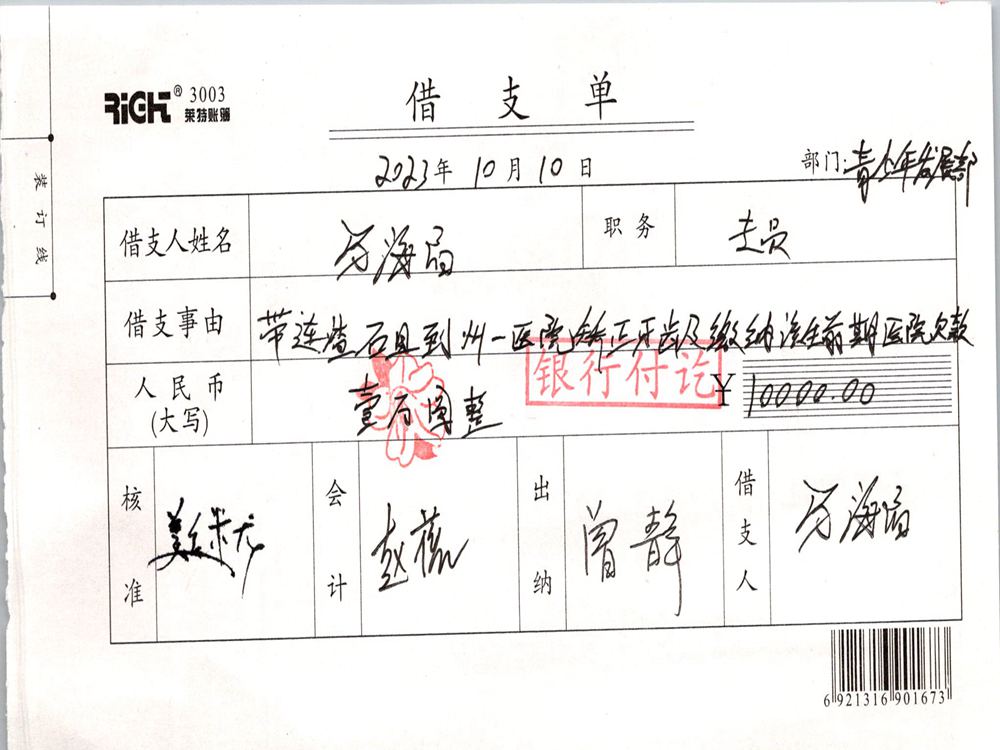 RiCH® 3003
莱特账簿
借支单
2023年 10月 10日
部门:青少年发展部
装订线
借支人姓名 海 职务 专员
借支事由 带连渣石且到州一医院矫正牙齿及缴纳该生前期医院欠款
人民币
(大写) 壹 圆整 ¥ 10000.00
银行付讫
核准 会计 赵 出纳 曾静 借支人 海
6 921316 901673